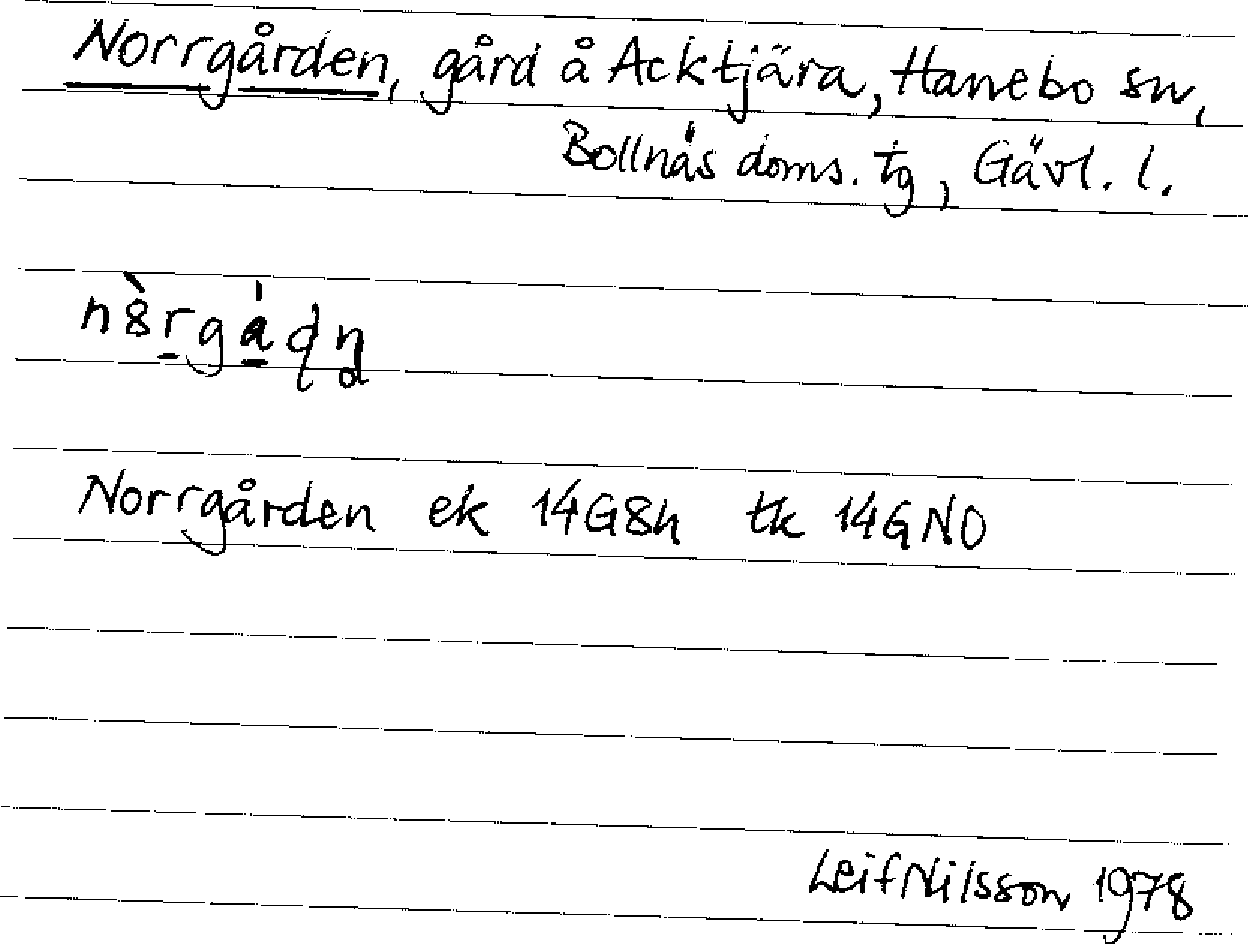 Norrgården, gård å Acktjära, Hanebo sn,
Bollnäs doms. tg, Gävl. l.
Norrgården ek 14G8h tk 14GNO
Leif Nilsson 1978